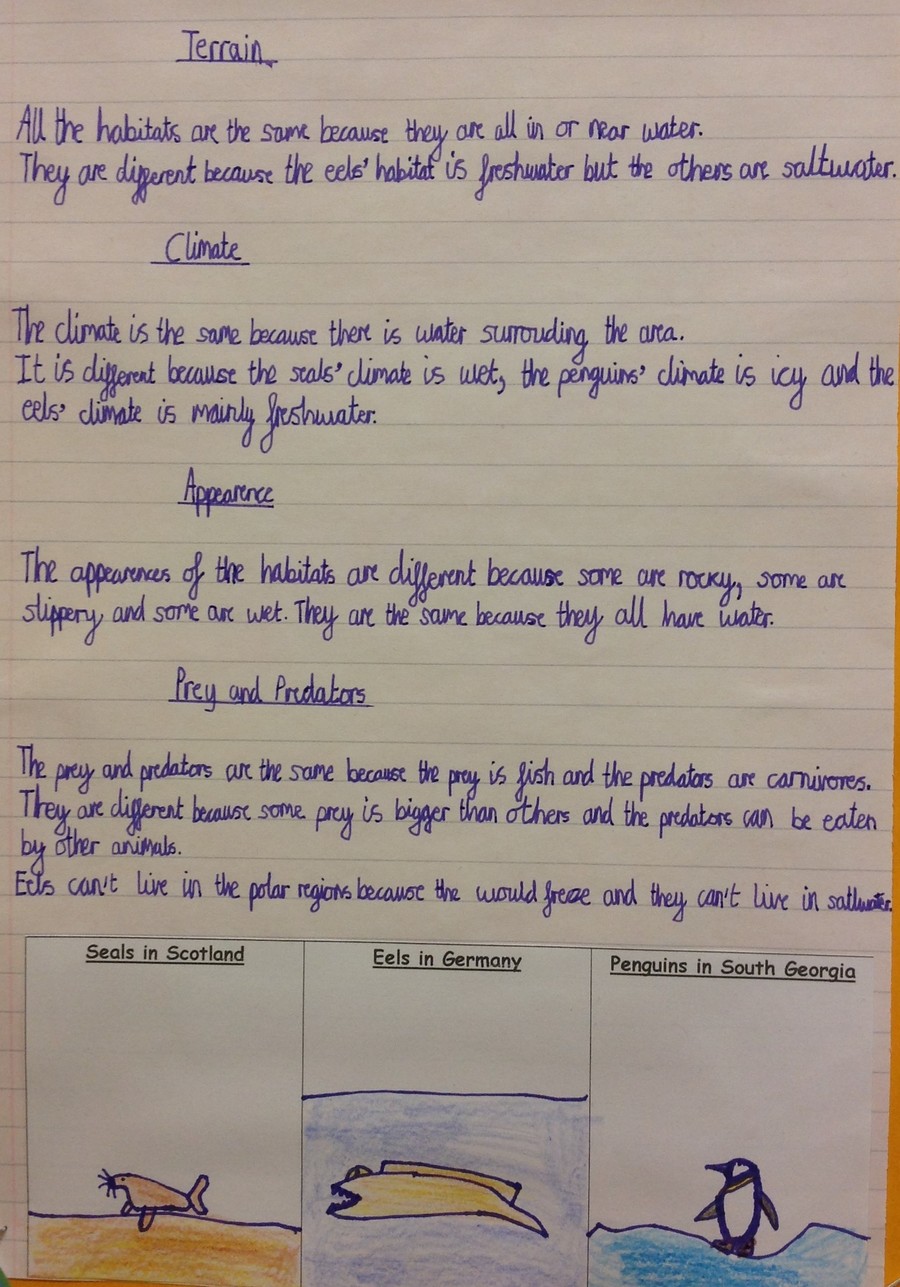 Terrain
All the habitats are the same because they are all in or near water.
They are different because the eels' habitat is freshwater but the others are saltwater.
Climate
The climate is the same because there is water surrouding the area.
It is different because the seals' climate is wet, the penguins' climate is icy and the
eels' climate is mainly freshwater.
Appearence
The appearences of the habitats are different because some are rocky, some are
slippery and some are wet. They are the same because they all have water.
Prey and Predators
The prey and predators are the same because the prey is fish and the predators are carnivores.
They are different because some prey is bigger than others and the predators can be eaten
by other animals.
Eels can't live in the polar regions because the would freeze and they can't live in saltwater.
Seals in Scotland
Eels in Germany
Penguins in South Georgia